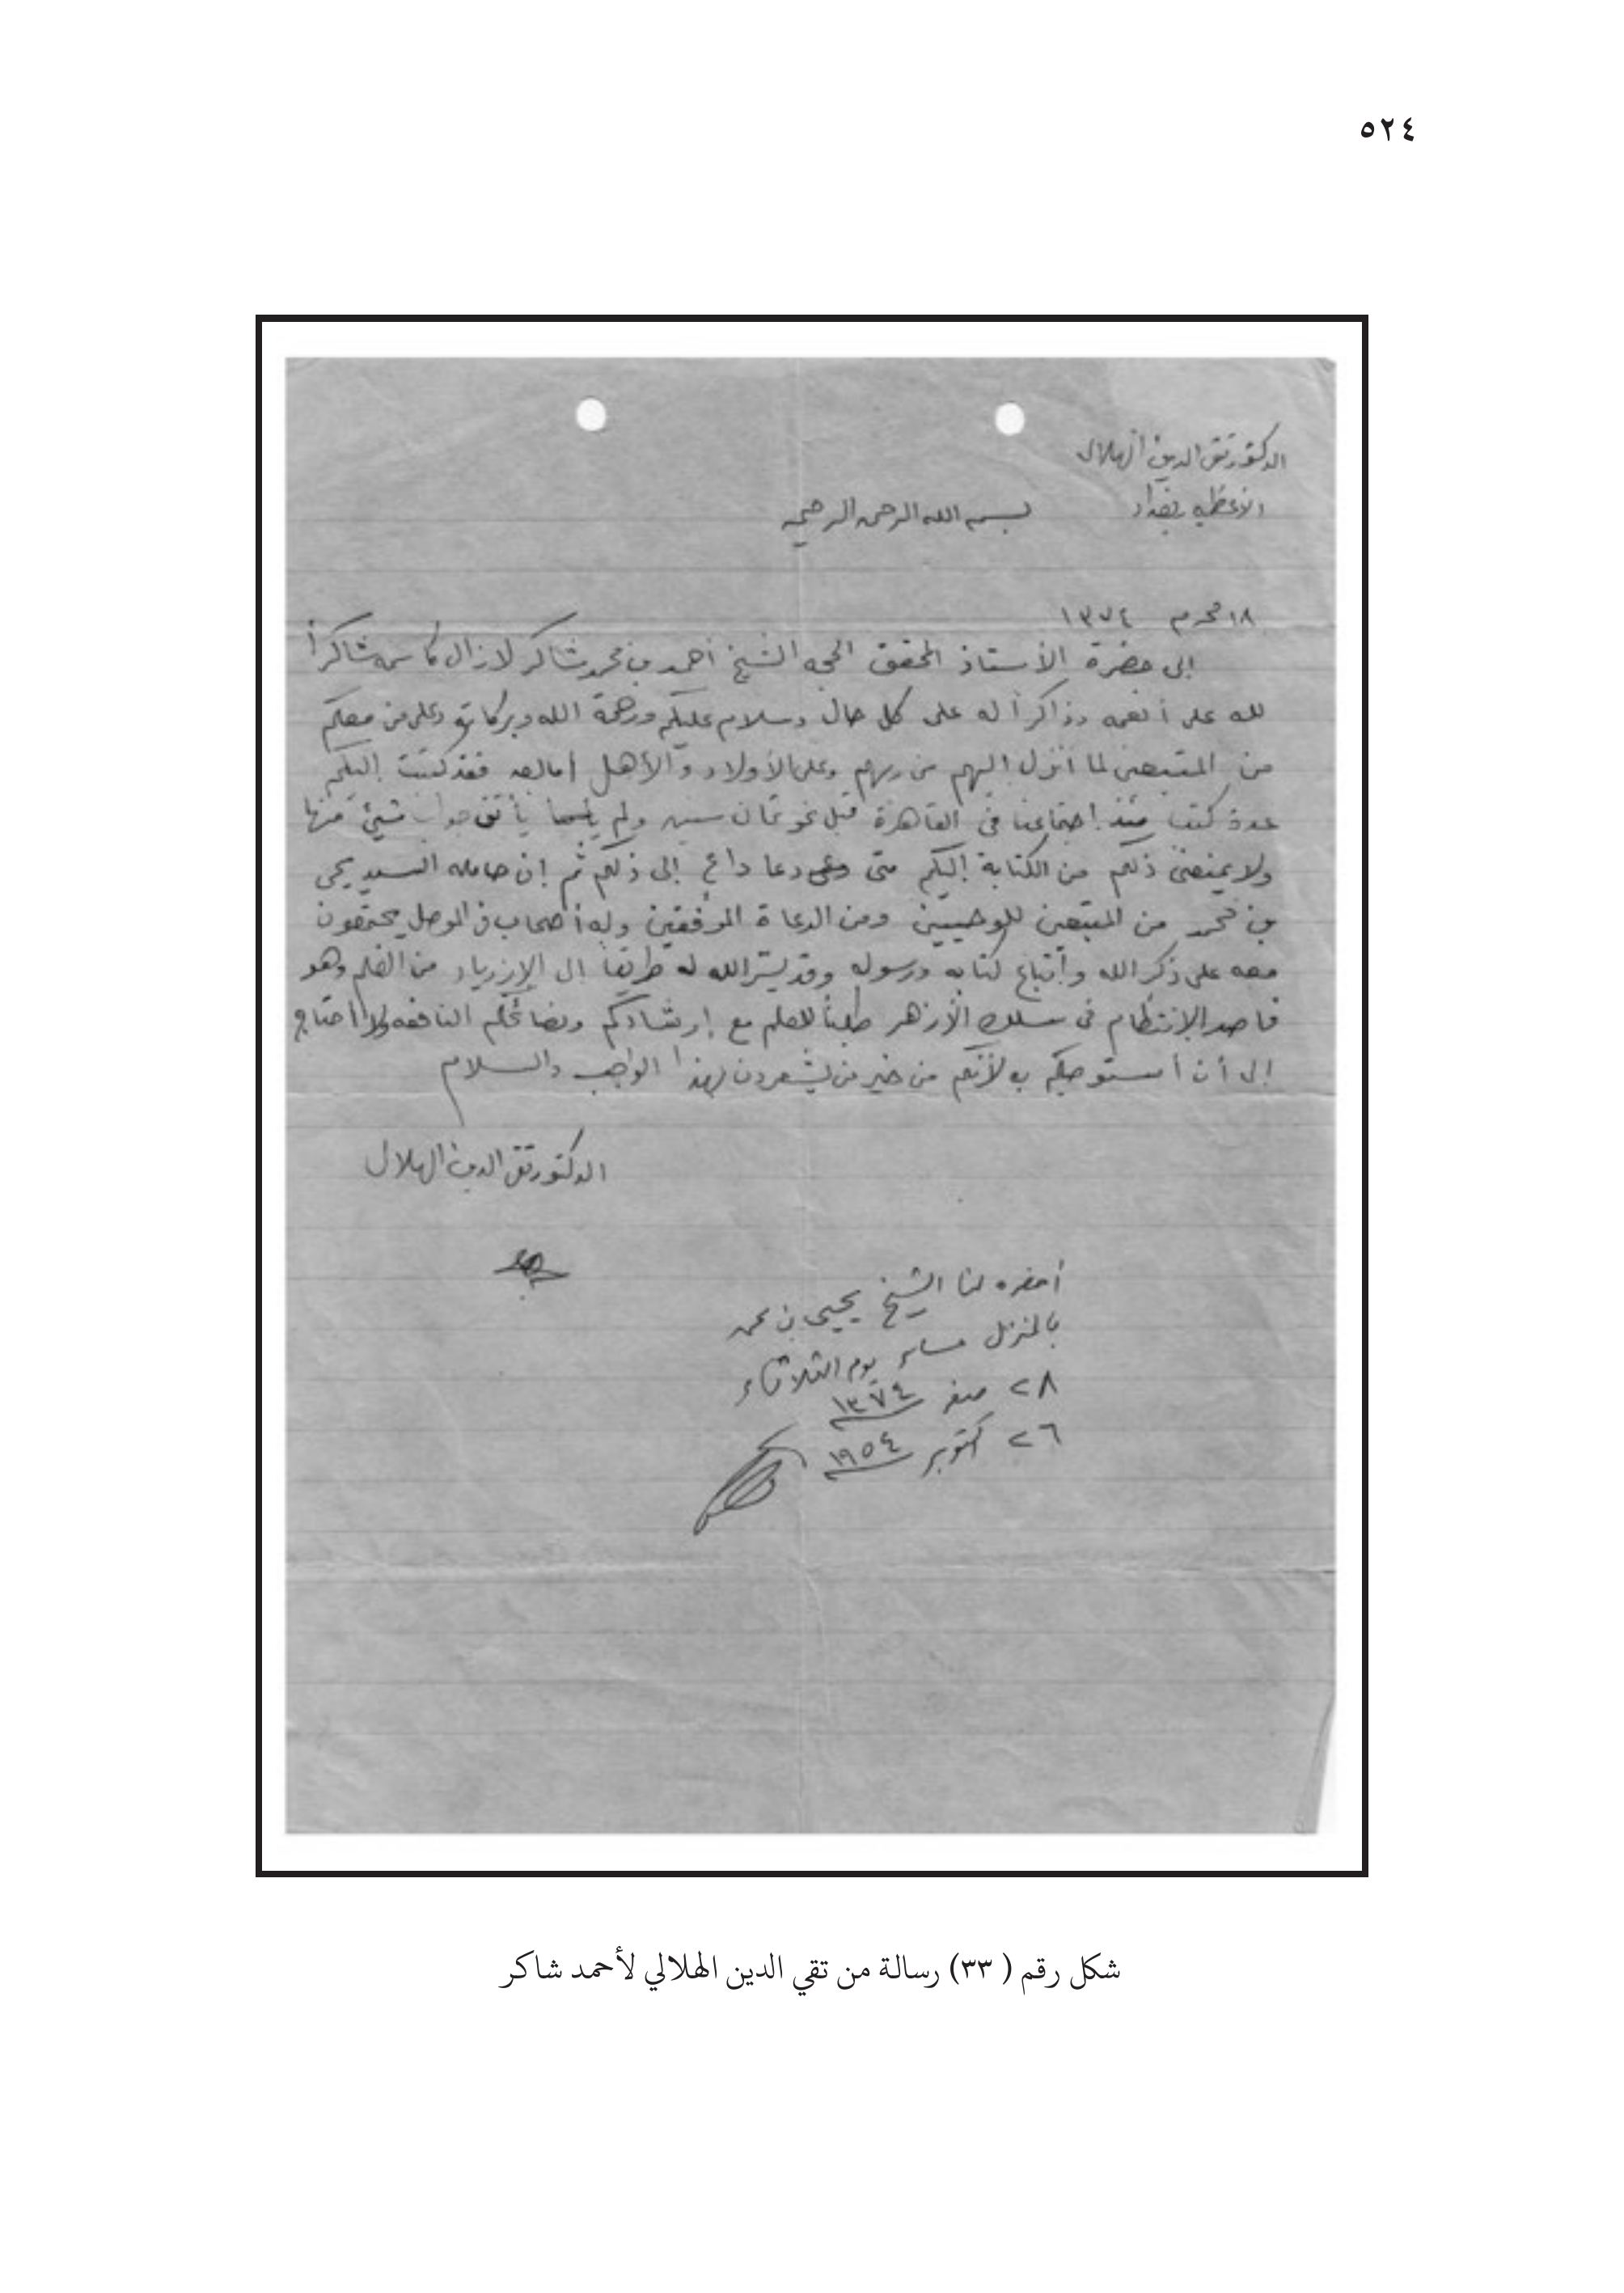 ٥٢٤
الدكتور تقي الدين الهلالي
الأعظمية بغداد
بسم الله الرحمن الرحيم
١٨ محرم ١٣٧٤
إلى حضرة الأستاذ المحقق الحجة الشيخ أحمد بن محمد شاكر لا زال كاسمه شاكراً
لله على أنعمه وذاكراً له على كل حال وسلام عليكم ورحمة الله وبركاته وعلى من معكم
من المتبعين لما أنزل إليهم من ربهم وعلى الأولاد والأهل أما بعد فقد كتبت إليكم
عدة كتب منذ اجتماعنا في القاهرة قبل نحو ثمان سنين ولم يأتني جواب شيئ منها
ولا يمنعني ذلكم من الكتابة إليكم متى دعا داع إلى ذلكم ثم إن حامله السيد يحيى
بن محمد من المتبعين للوحيين ومن الدعاة الموفقين وله أصحاب في الموصل يجتمعون
معه على ذكر الله وأتباع كتابه ورسوله وقد يسر الله له طريقاً إلى الازدياد من العلم وهو
قاصد الانتظام في سلك الأزهر طلباً للعلم مع إرشادكم ونصائحكم النافعة ولا أحتاج
إلى أن أستوصيكم به لأنكم من خير من يشعرون بهذا الواجب والسلام
الدكتور تقي الدين الهلالي
أحضره لنا الشيخ يحيى بن محمد
بالمنزل مساء يوم الثلاثاء
٢٨ صفر ١٣٧٤
٢٦ أكتوبر ١٩٥٤
شكل رقم ( ٣٣) رسالة من تقي الدين الهلالي لأحمد شاكر